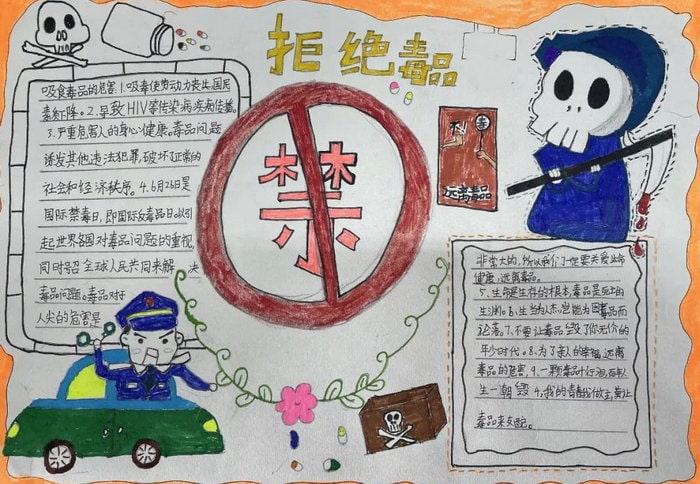 拒绝毒品
吸食毒品的危害1.吸毒使劳动力丧失,国民
素质下降。2.导致HIV等传染病疾病传播。
3.严重危害人的身心健康。毒品问题
诱发其他违法犯罪,破坏了正常的
社会和经济秩序。4.6月26是
国际禁毒日,即国际反毒品日。以引
起世界各国对毒品问题的重视,
同时号召全球人民共同来解决
毒品问题。毒品对于
人类的危害是
禁
毒
远离毒品
非常大的,所以我们一定要关爱生命
健康,远离毒品。
5、生命是生存的根本,毒品是死亡的
生涯。6、生当为人杰,岂能为因毒品而
沦落。7、不要让毒品毁了你无价的
年少时代。8、为了亲人的幸福,远离
毒品的危害。9、一颗毒品
生一朝毁 9,我的青春我做主,莫让
毒品来